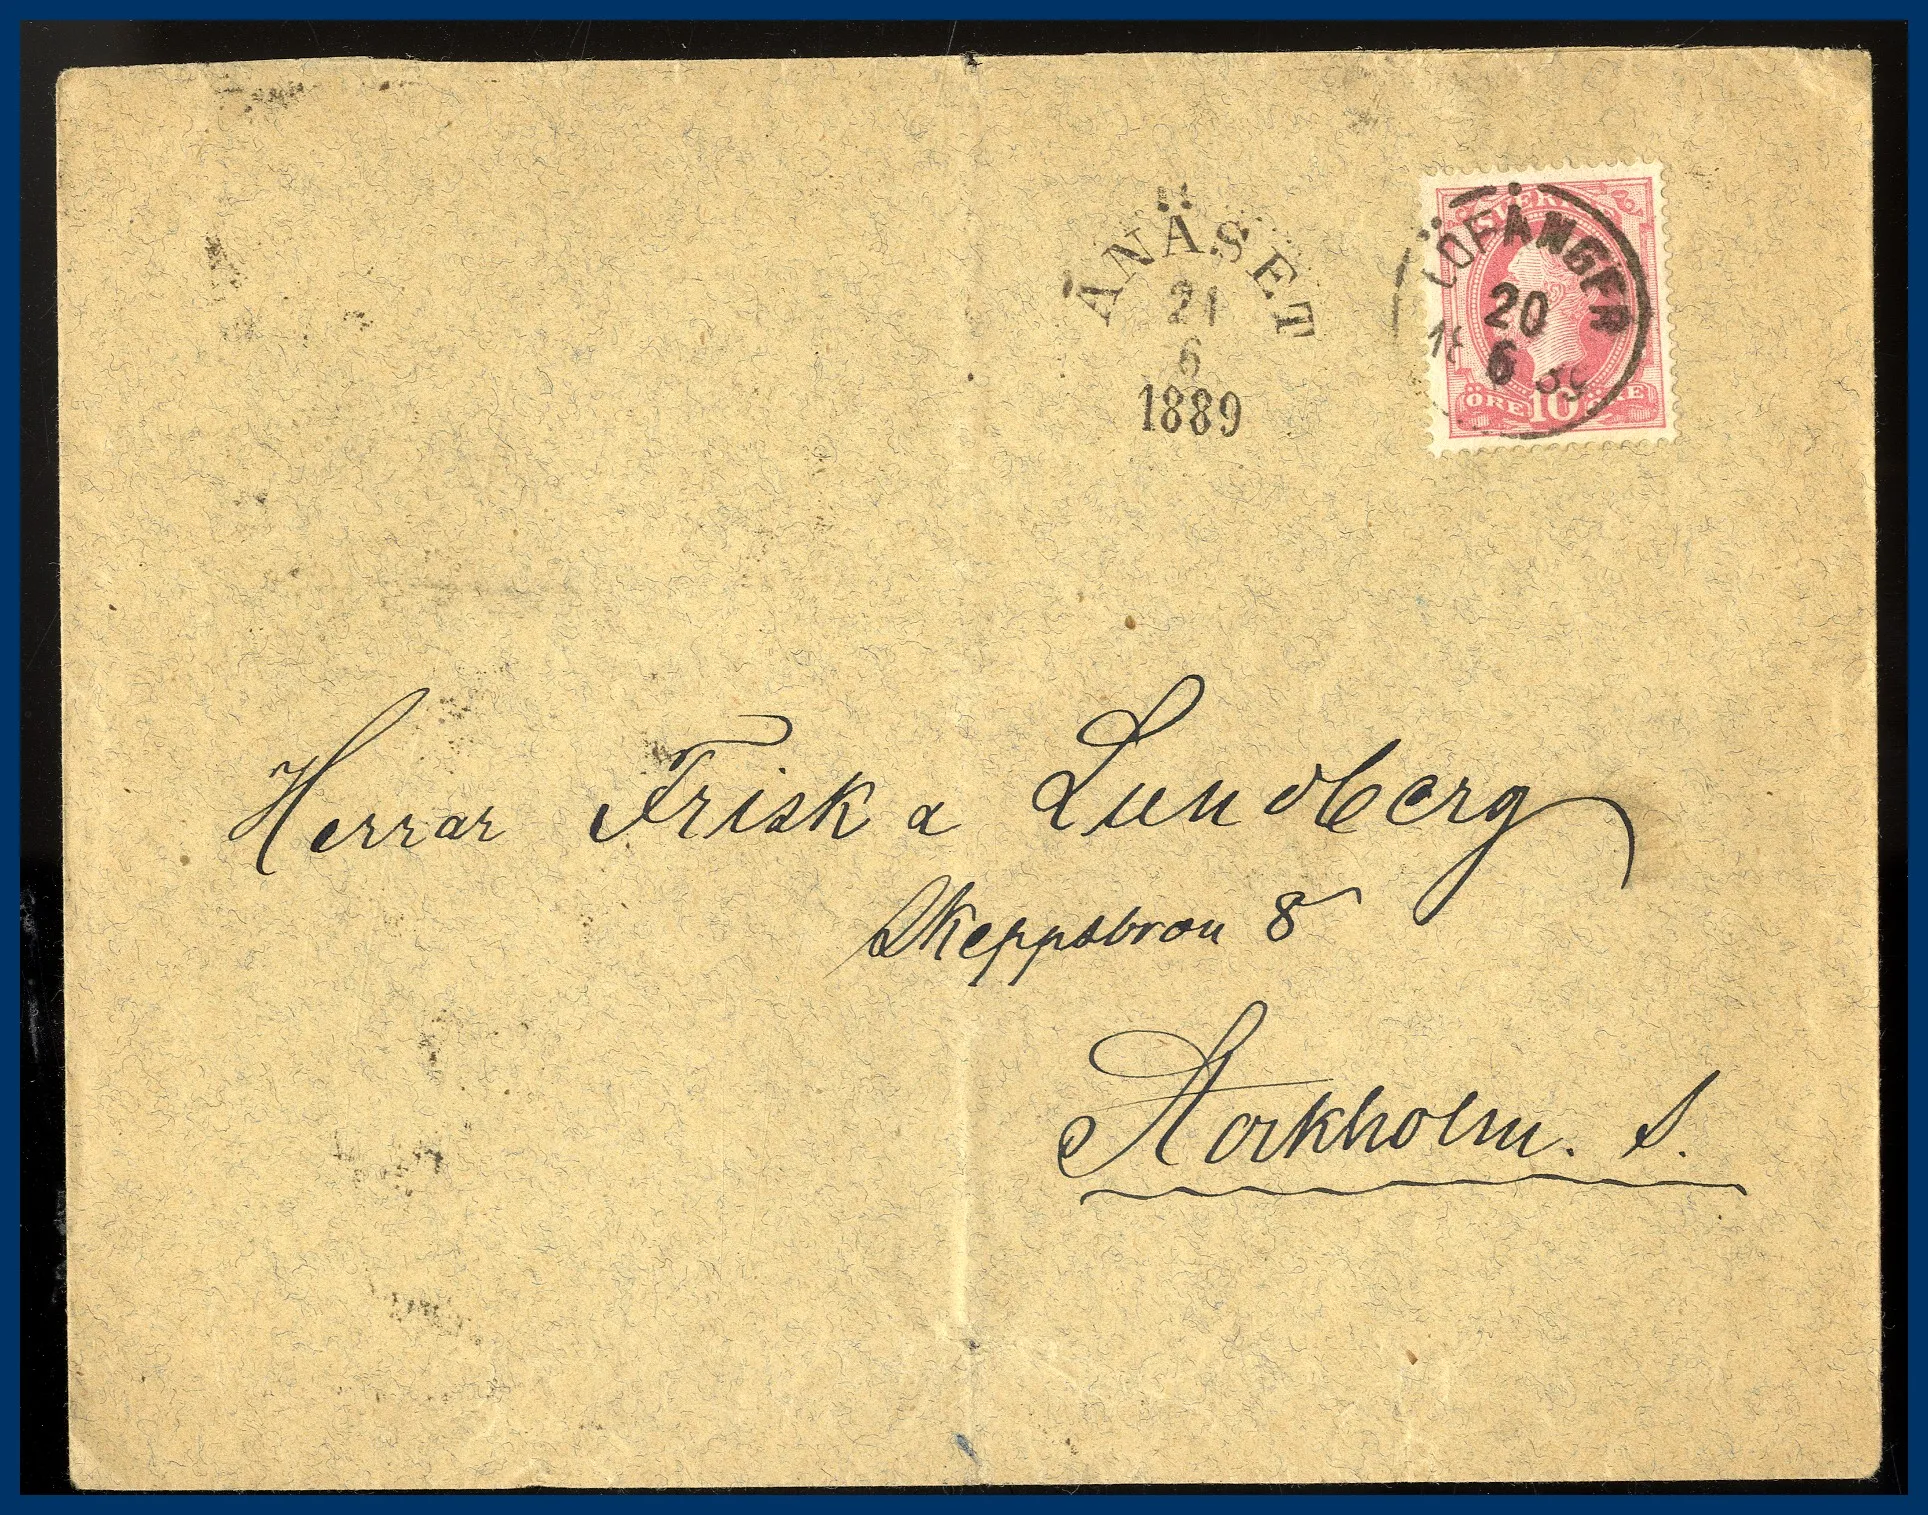 ANÄSET
21
6
1889
SVERIGE
LÖFÅNGER
20
6
18 89
ÖRE 10 ÖRE
Herrar Frisk & Lundberg
Skeppsbron 8
Stockholm. S.